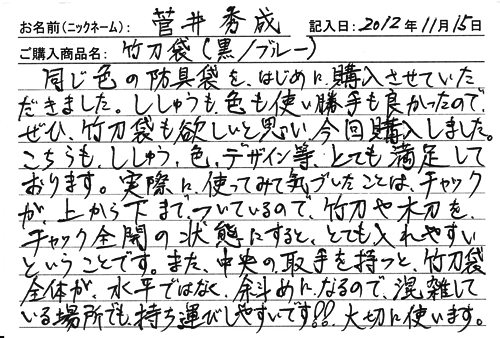 お名前(ニックネーム): 菅井秀成 記入日: 2012年11月15日
ご購入商品名: 竹刀袋(黒/ブルー)
同じ色の防具袋を、はじめに購入させていた
だきました。ししゅうも、色も使い勝手も良かったので、
ぜひ、竹刀袋も欲しいと思い、今回購入しました。
こちらも、ししゅう、色、デザイン等、とても満足して
おります。実際に、使ってみて気づいたことは、チャック
が、上から下まで、ついているので、竹刀や木刀を、
チャック全開の状態にすると、とても入れやすい
ということです。また、中央の取手を持つと、竹刀袋
全体が、水平ではなく、斜めになるので、混雑して
いる場所でも、持ち運びしやすいです!!大切に使います。